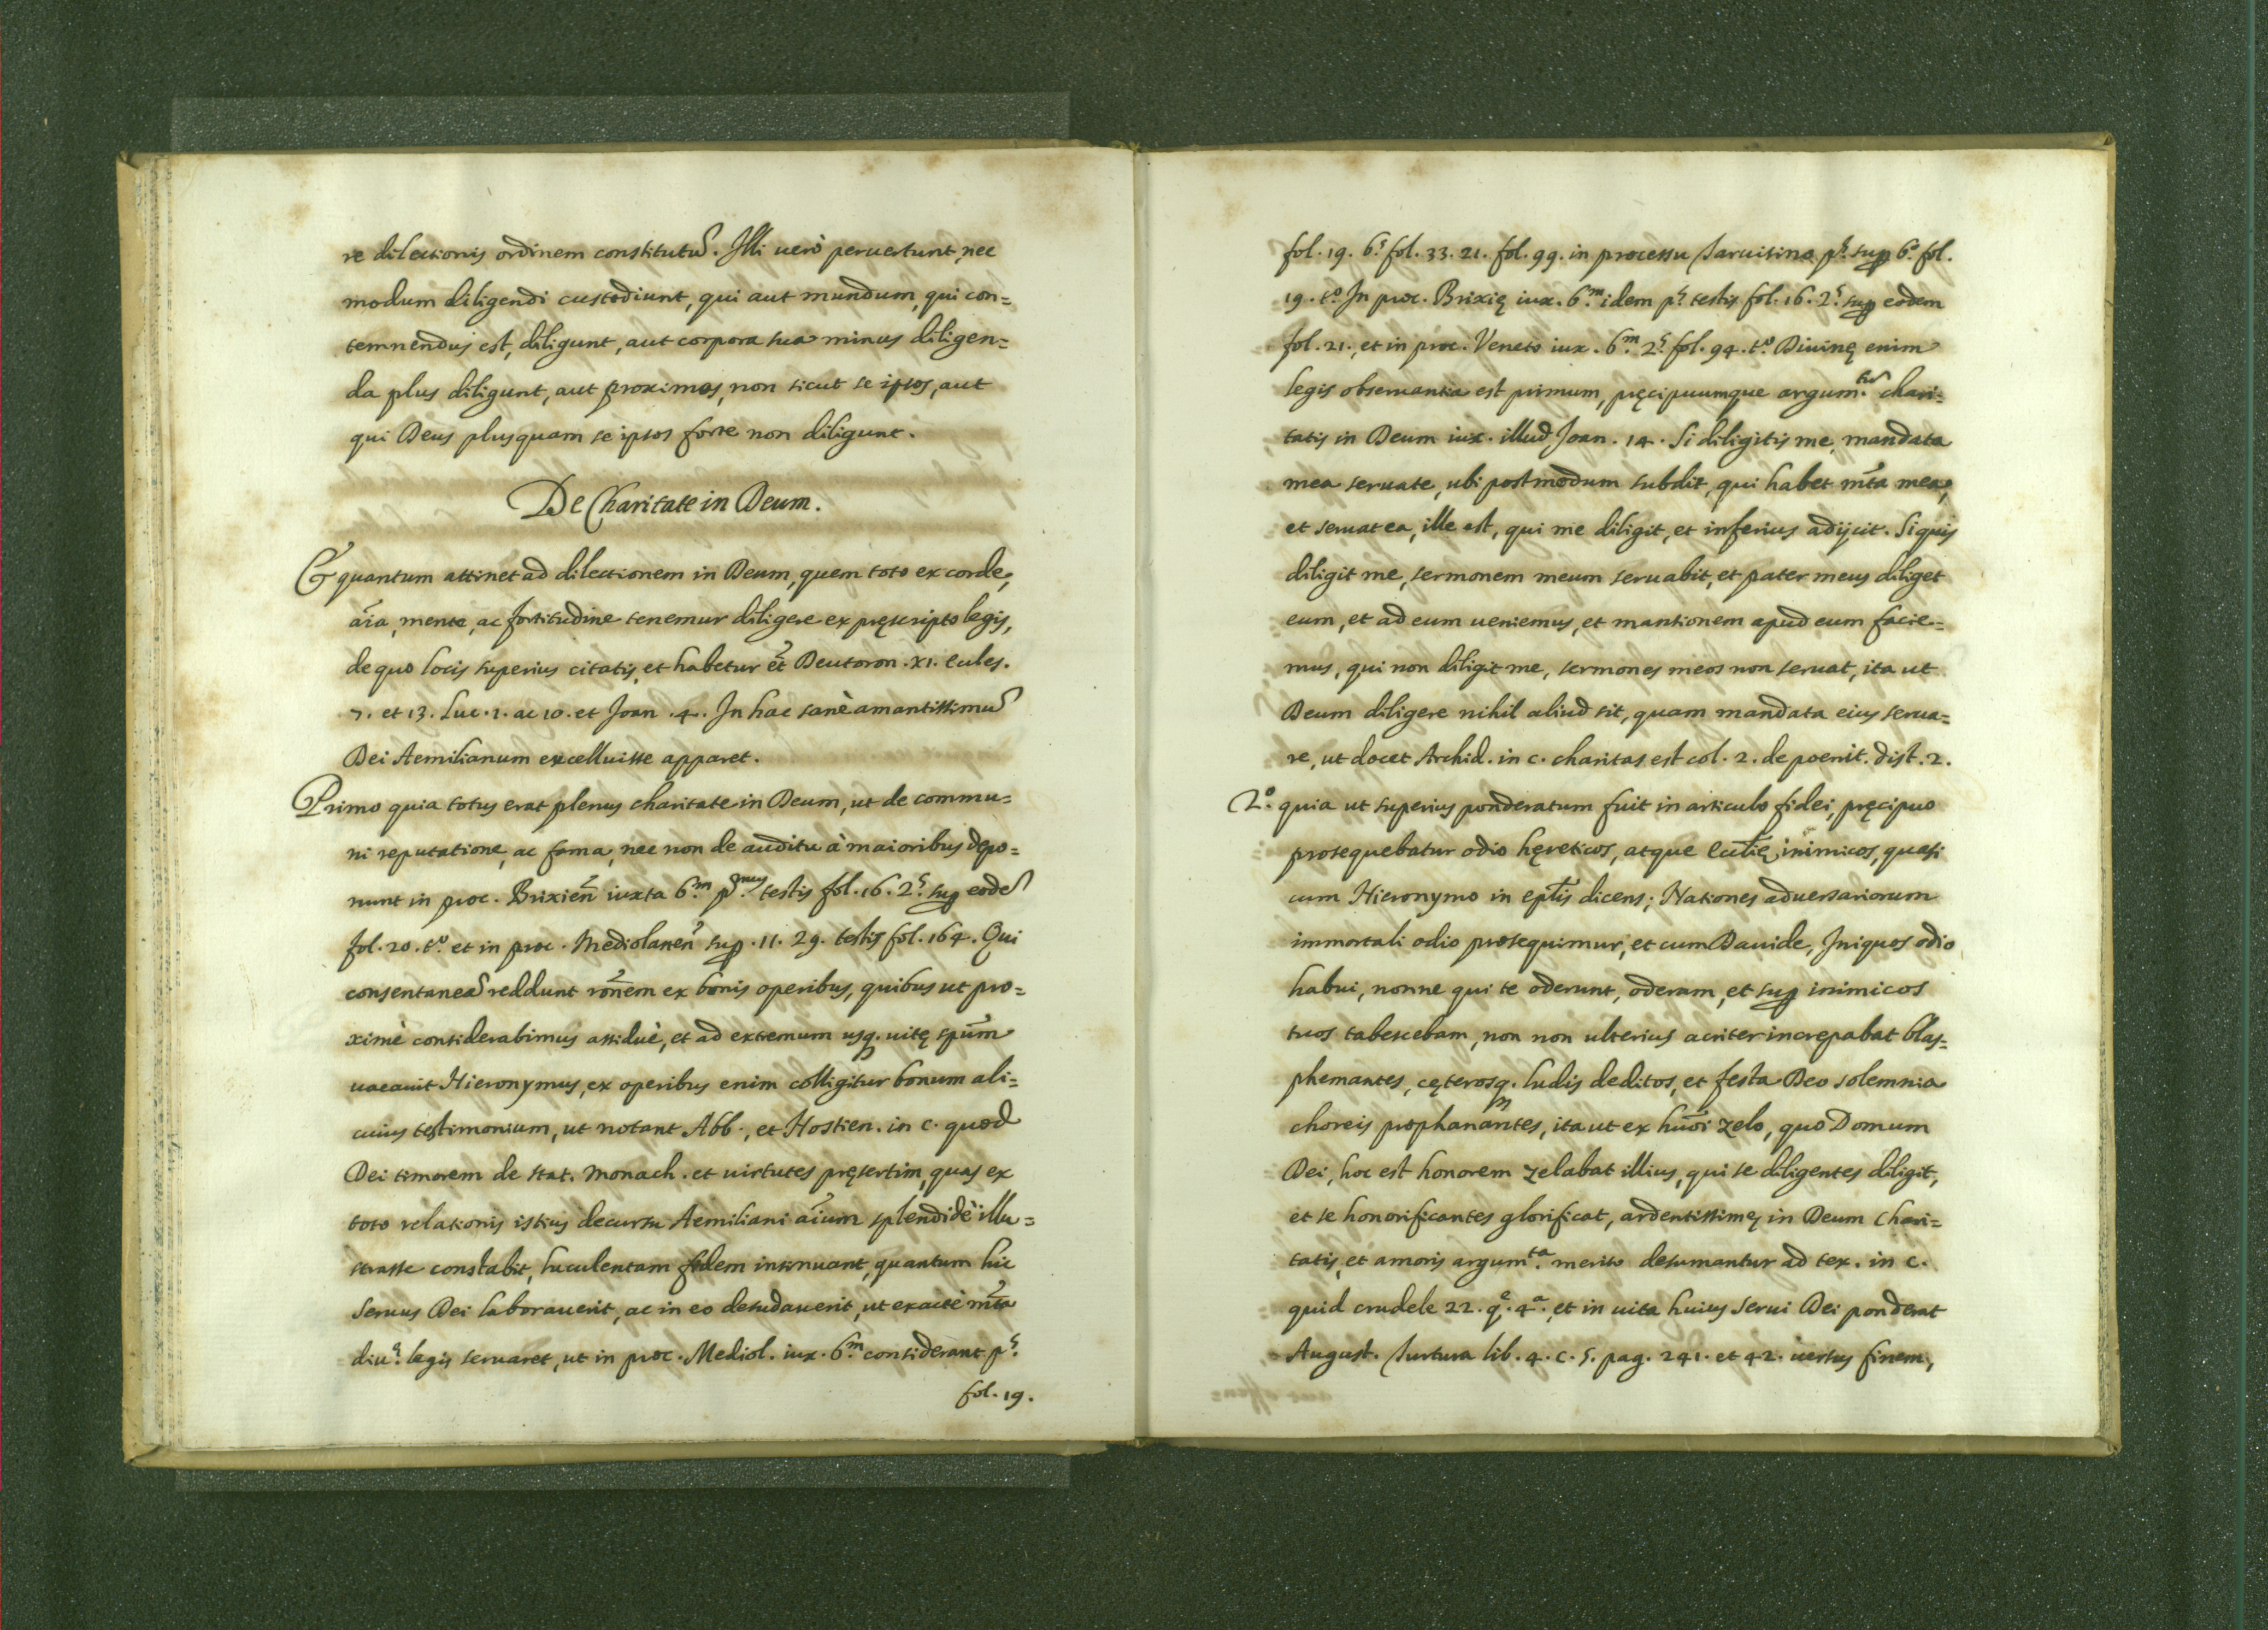 re dilectionis ordinem constitutũ. Illi uerò peruertunt, nec
modum diligendi custodiunt, qui aut mundum, qui con=
temnendus est, diligunt, aut corpora sua minus diligen=
da plus diligunt, aut proximos, non sicut se ipsos, aut
qui Deus plusquam se ipsos forte non diligunt.
De Charitate in Deum.
Et quantum attinet ad dilectionem in Deum, quem toto ex corde,
aĩa, mente, ac fortitudine tenemur diligere ex pręscripto legis,
de quo locis superius citatis, et habetur et̃ Deutoron. XI. eccles.
7. et 13. Luc. 1. ac 10. et Joan. 4. In hac sanè amantissimũ
Dei Aemilianum excelluisse apparet.
Primo quia totus erat plenus charitate in Deum, ut de commu=
ni reputatione, ac fama, nec non de auditu à maioribus depo=
nunt in proc. Brixieñ iuxta 6.m p.mus testis fol. 16. 2.s sup eodẽ
fol. 20. t.o et in proc. Mediolaneñ sup. 11. 29. testis fol. 164. Qui
consentaneã reddunt rõnem ex bonis operibus, quibus ut pro=
ximè considerabimus assiduè, et ad extremum usq. uitę spũm
uacauit Hieronymus, ex operibus enim colligitur bonum ali=
cuius testimonium, ut notant Abb., et Hostien. in c. quod
Dei timorem de stat. monach. et uirtutes pręsertim, quas ex
toto relationis istius decursu Aemiliani aĩum splendidè illu=
strasse constabit, luculentam fidem insinuant, quantum hic
Seruus Dei laborauerit, ac in eo desudauerit, ut exactè mñta
diu.ę legis seruaret, ut in proc. Mediol. iux. 6.m considerant p.s
fol. 19.
fol. 19. 6.s fol. 33. 21. fol. 99. in processu Taruisino p.s sup 6.o fol.
19. t.o In proc. Brixię iux. 6.m idem p.s testis fol. 16. 2.s sup eodem
fol. 21., et in proc. Veneto iux. 6.m 2.s fol. 94. t.o Diuinę enim
legis obseruantia est primum, pręcipuumque argum.tũ chari=
tatis in Deum iux. illud Joan. 14. Si diligitis me, mandata
mea seruate, ubi postmodum subdit, qui habet mñta mea,
et seruat ea, ille est, qui me diligit, et inferius adijcit. Siquis
diligit me, sermonem meum seruabit, et pater meus diliget
eum, et ad eum ueniemus, et mantionem apud eum facie=
mus, qui non diligit me, sermones meos non seruat, ita ut
Deum diligere nihil aliud sit, quam mandata eius serua=
re, ut docet Archid. in c. charitas est col. 2. de poenit. dist. 2.
2.o quia ut superius ponderatum fuit in articulo fidei, pręcipuo
prosequebatur odio hęreticos, atque eccl̃ię inimicos, quasi
cum Hieronymo in epl̃is dicens; Nationes aduersariorum
immortali odio prosequimur, et cum Dauide, Iniquos odio
habui, nonne qui te oderunt, oderam, et sup inimicos
tuos tabescebam, non non ulterius acriter increpabat blas=
phemantes, cęterosq. ludis deditos, et festa Deo solemnia
choreis prophanantes, ita ut ex hmõi zelo, quo Domum
Dei, hoc est honorem zelabat illius, qui se diligentes diligit,
et se honorificantes glorificat, ardentissimę in Deum Chari=
tatis, et amoris argum.ta merito desumantur ad tex. in c.
quid crudele 22. q.e 4.a, et in uita huius Serui Dei ponderat
August. Turtura lib. 4. c. 5. pag. 241. et 42. uersus finem,